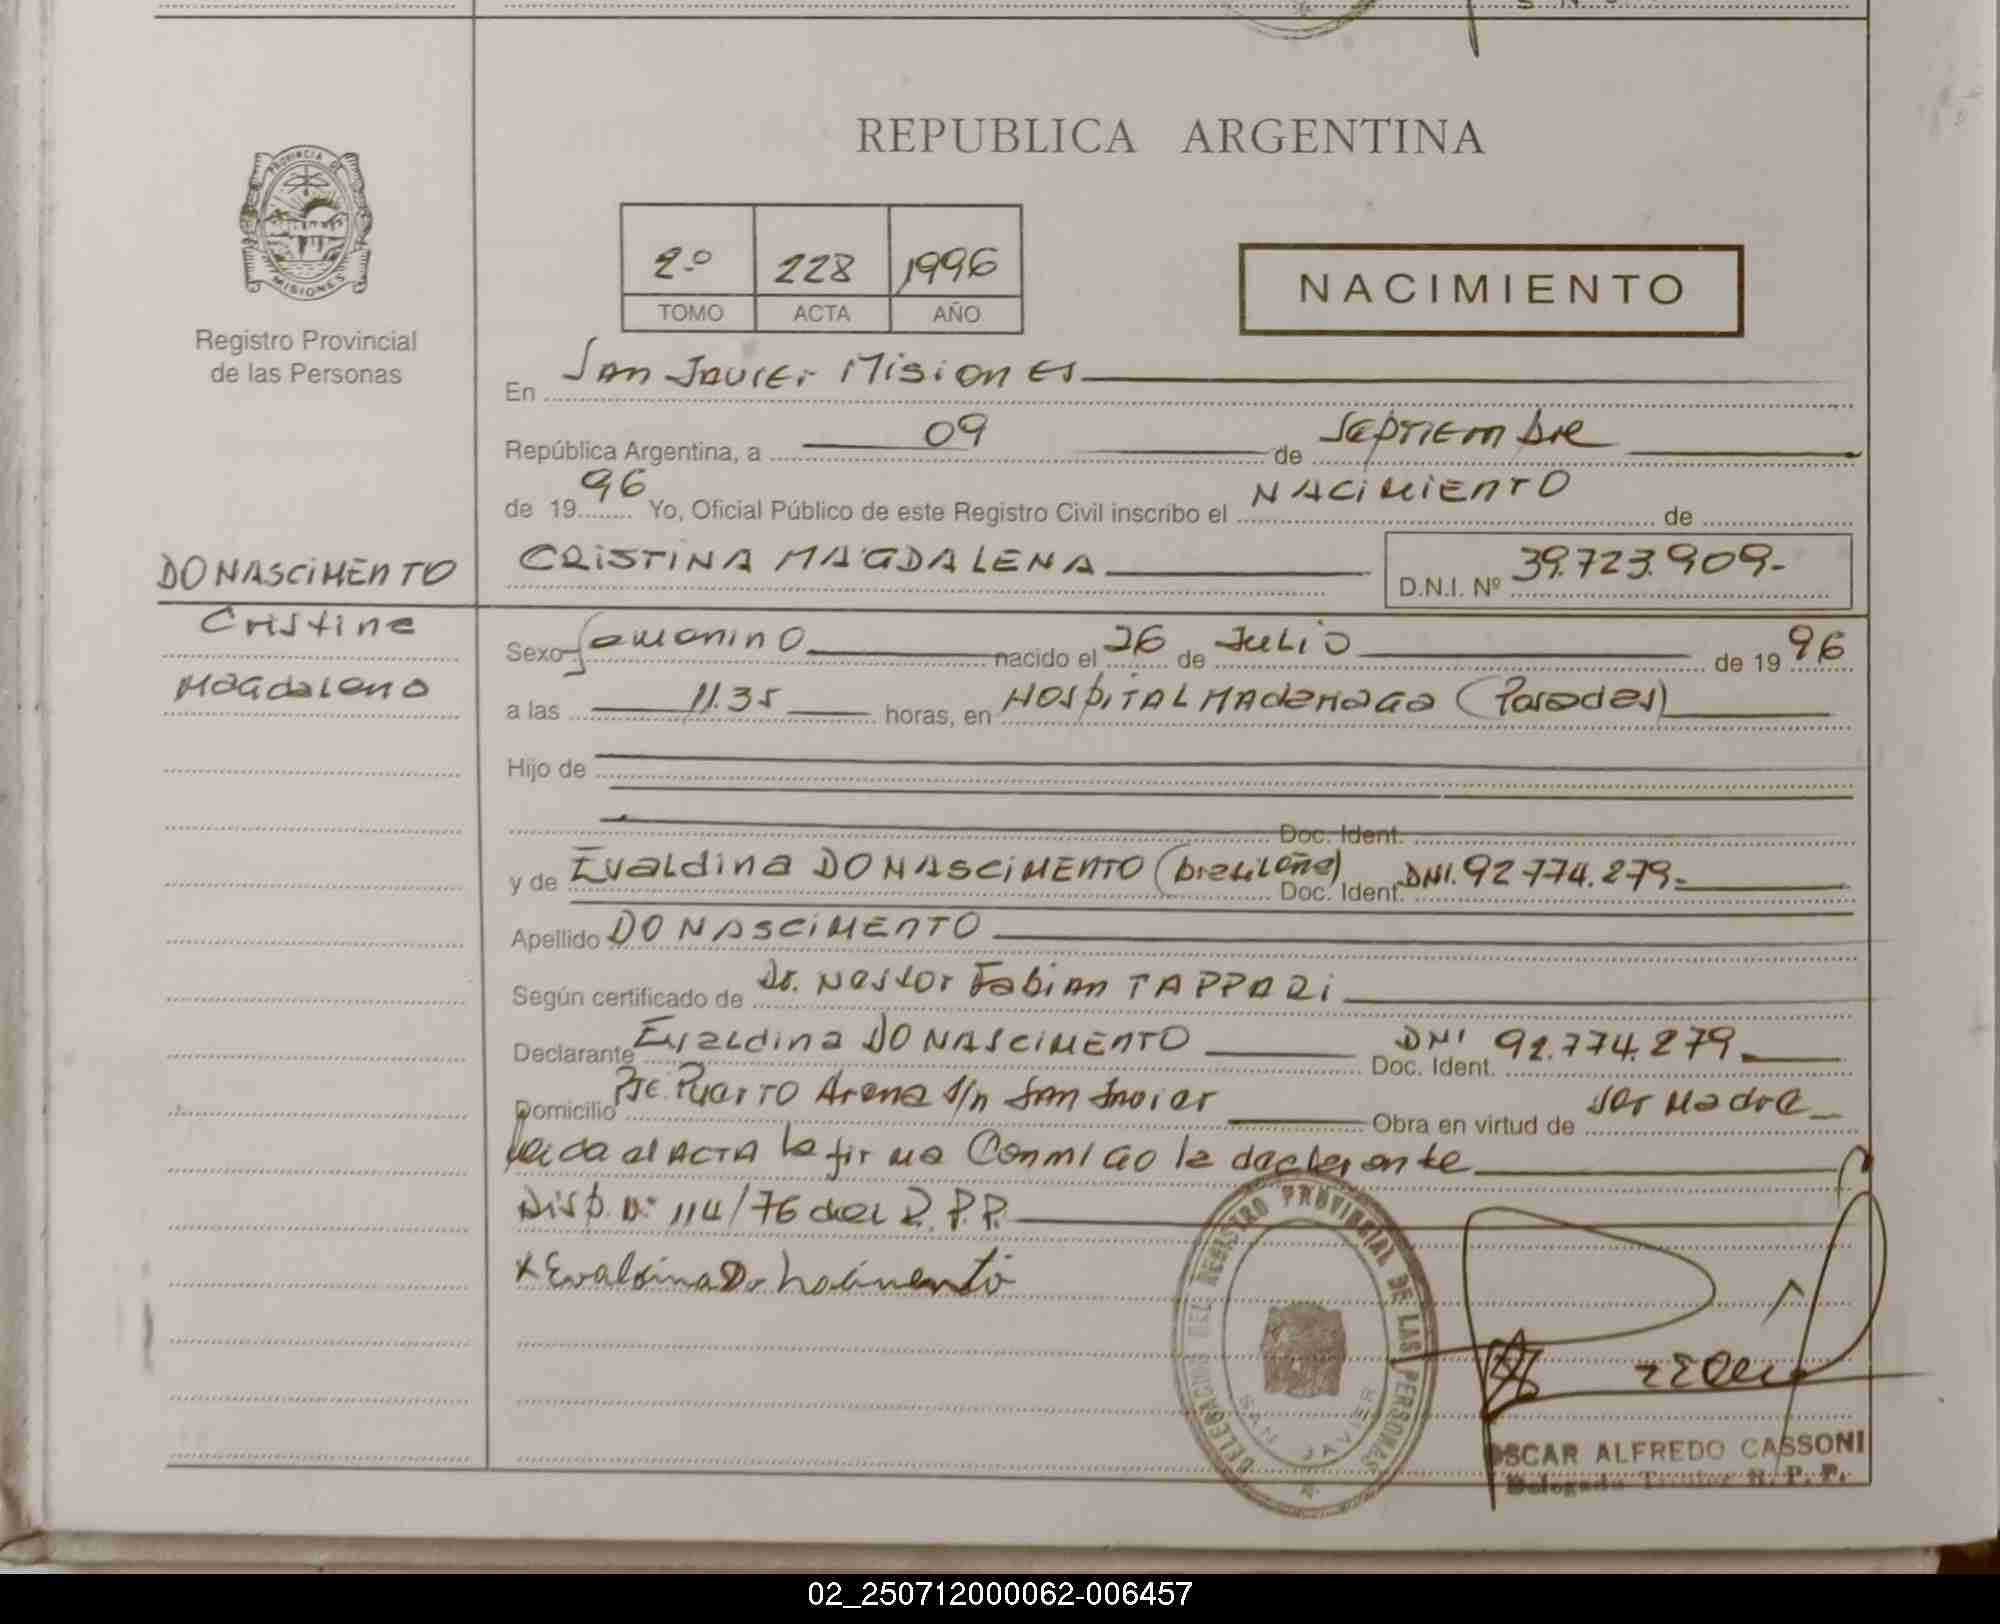 REPUBLICA ARGENTINA
PROVINCIA DE
MISIONES
Registro Provincial
de las Personas
2º 228 1996
TOMO ACTA AÑO
NACIMIENTO
En San Javier Misiones
República Argentina, a 09 de Septiembre
de 1996 Yo, Oficial Público de este Registro Civil inscribo el NACIMIENTO de
DO NASCIMENTO
CRISTINA MAGDALENA
D.N.I. Nº 39.723.909-
Cristina
Magdalena
Sexo femenino nacido el 26 de Julio de 1996
a las 11.35 horas, en Hospital Madariaga (Posadas)
Hijo de
Doc. Ident.
y de Evaldina DO NASCIMENTO (brasileña) Doc. Ident. DNI. 92.774.279-
Apellido DO NASCIMENTO
Según certificado de Dr. Nestor Fabian TAPPARI
Declarante Evaldina DO NASCIMENTO Doc. Ident. DNI 92.774.279
Domicilio Pje. Puerto Arena s/n San Javier Obra en virtud de ser Madre
Leida el ACTA la firma Conmigo la declarante
Disp. Nº 114/76 del R.P.P.
x Evaldina Do Nacimento
DELEGACION DEL REGISTRO PROVINCIAL DE LAS PERSONAS
SAN JAVIER
OSCAR ALFREDO CASSONI
Delegado Titular R. P. P.
02_250712000062-006457